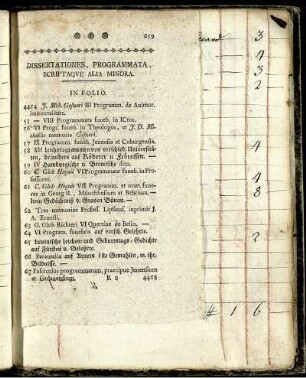 219
DISSERTATIONES, PROGRAMMATA,
SCRIPTAQVE ALIA MINORA.
IN FOLIO.
4454 J. Mth. Gesneri III Programm. de Animor.
immortalitate.
55 — VIII Programmata funeb. in ICtos.
56 VI Progr. funeb. in Theologos, et J. D. Mi-
chaelis memoria Gesneri.
57 IX Programm. funeb. Jenensia et Coburgensia.
58 XII Leichprogrammen von verschied. Universitä-
ten, besonders auf Fürsten u. Fürstinnen.
59 IV Hamburgische u. Bremische dito.
60 C. Glob Heyne VI Programmata funeb. in Pro-
fessores.
61 C. Glob Heyne VII Programm. et orat. fune-
in Georg II, Münchhusium et Behrium.
tem Gedächtnis d. Grafen Bünau.
62 Tres memoriae Profess. Lipsiens. inprimis J.
A. Ernesti.
63 C. Glob Rickeri VI Querelae de Bello.
64 VI Program. funebria auf versch. Gelehrte.
65 lateinische Leichen und Geburtstags-Gedichte
auf Fürsten u. Gelehrte.
66 Parentalia auf
Bildnisse.
67 Fasciculus programmatum, praecipue Jenensium
et Gothanorum.
4468
3
4
3
2
4
4
8
2
# 1 6